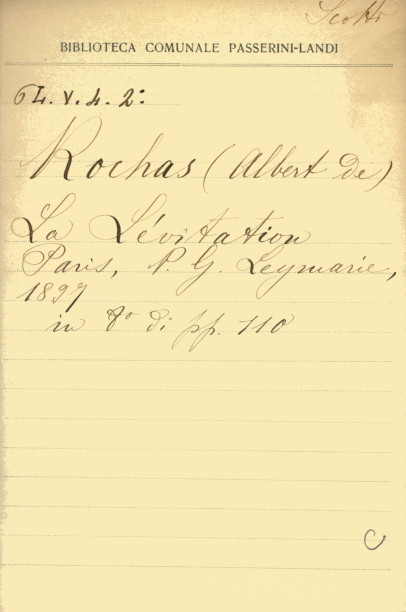 Scotti
BIBLIOTECA COMUNALE PASSERINI-LANDI
6L.V.4.2:
Rochas (Albert de)
La Lévitation
Paris, P. G. Leymarie,
1897
in 8° di pp. 110
C